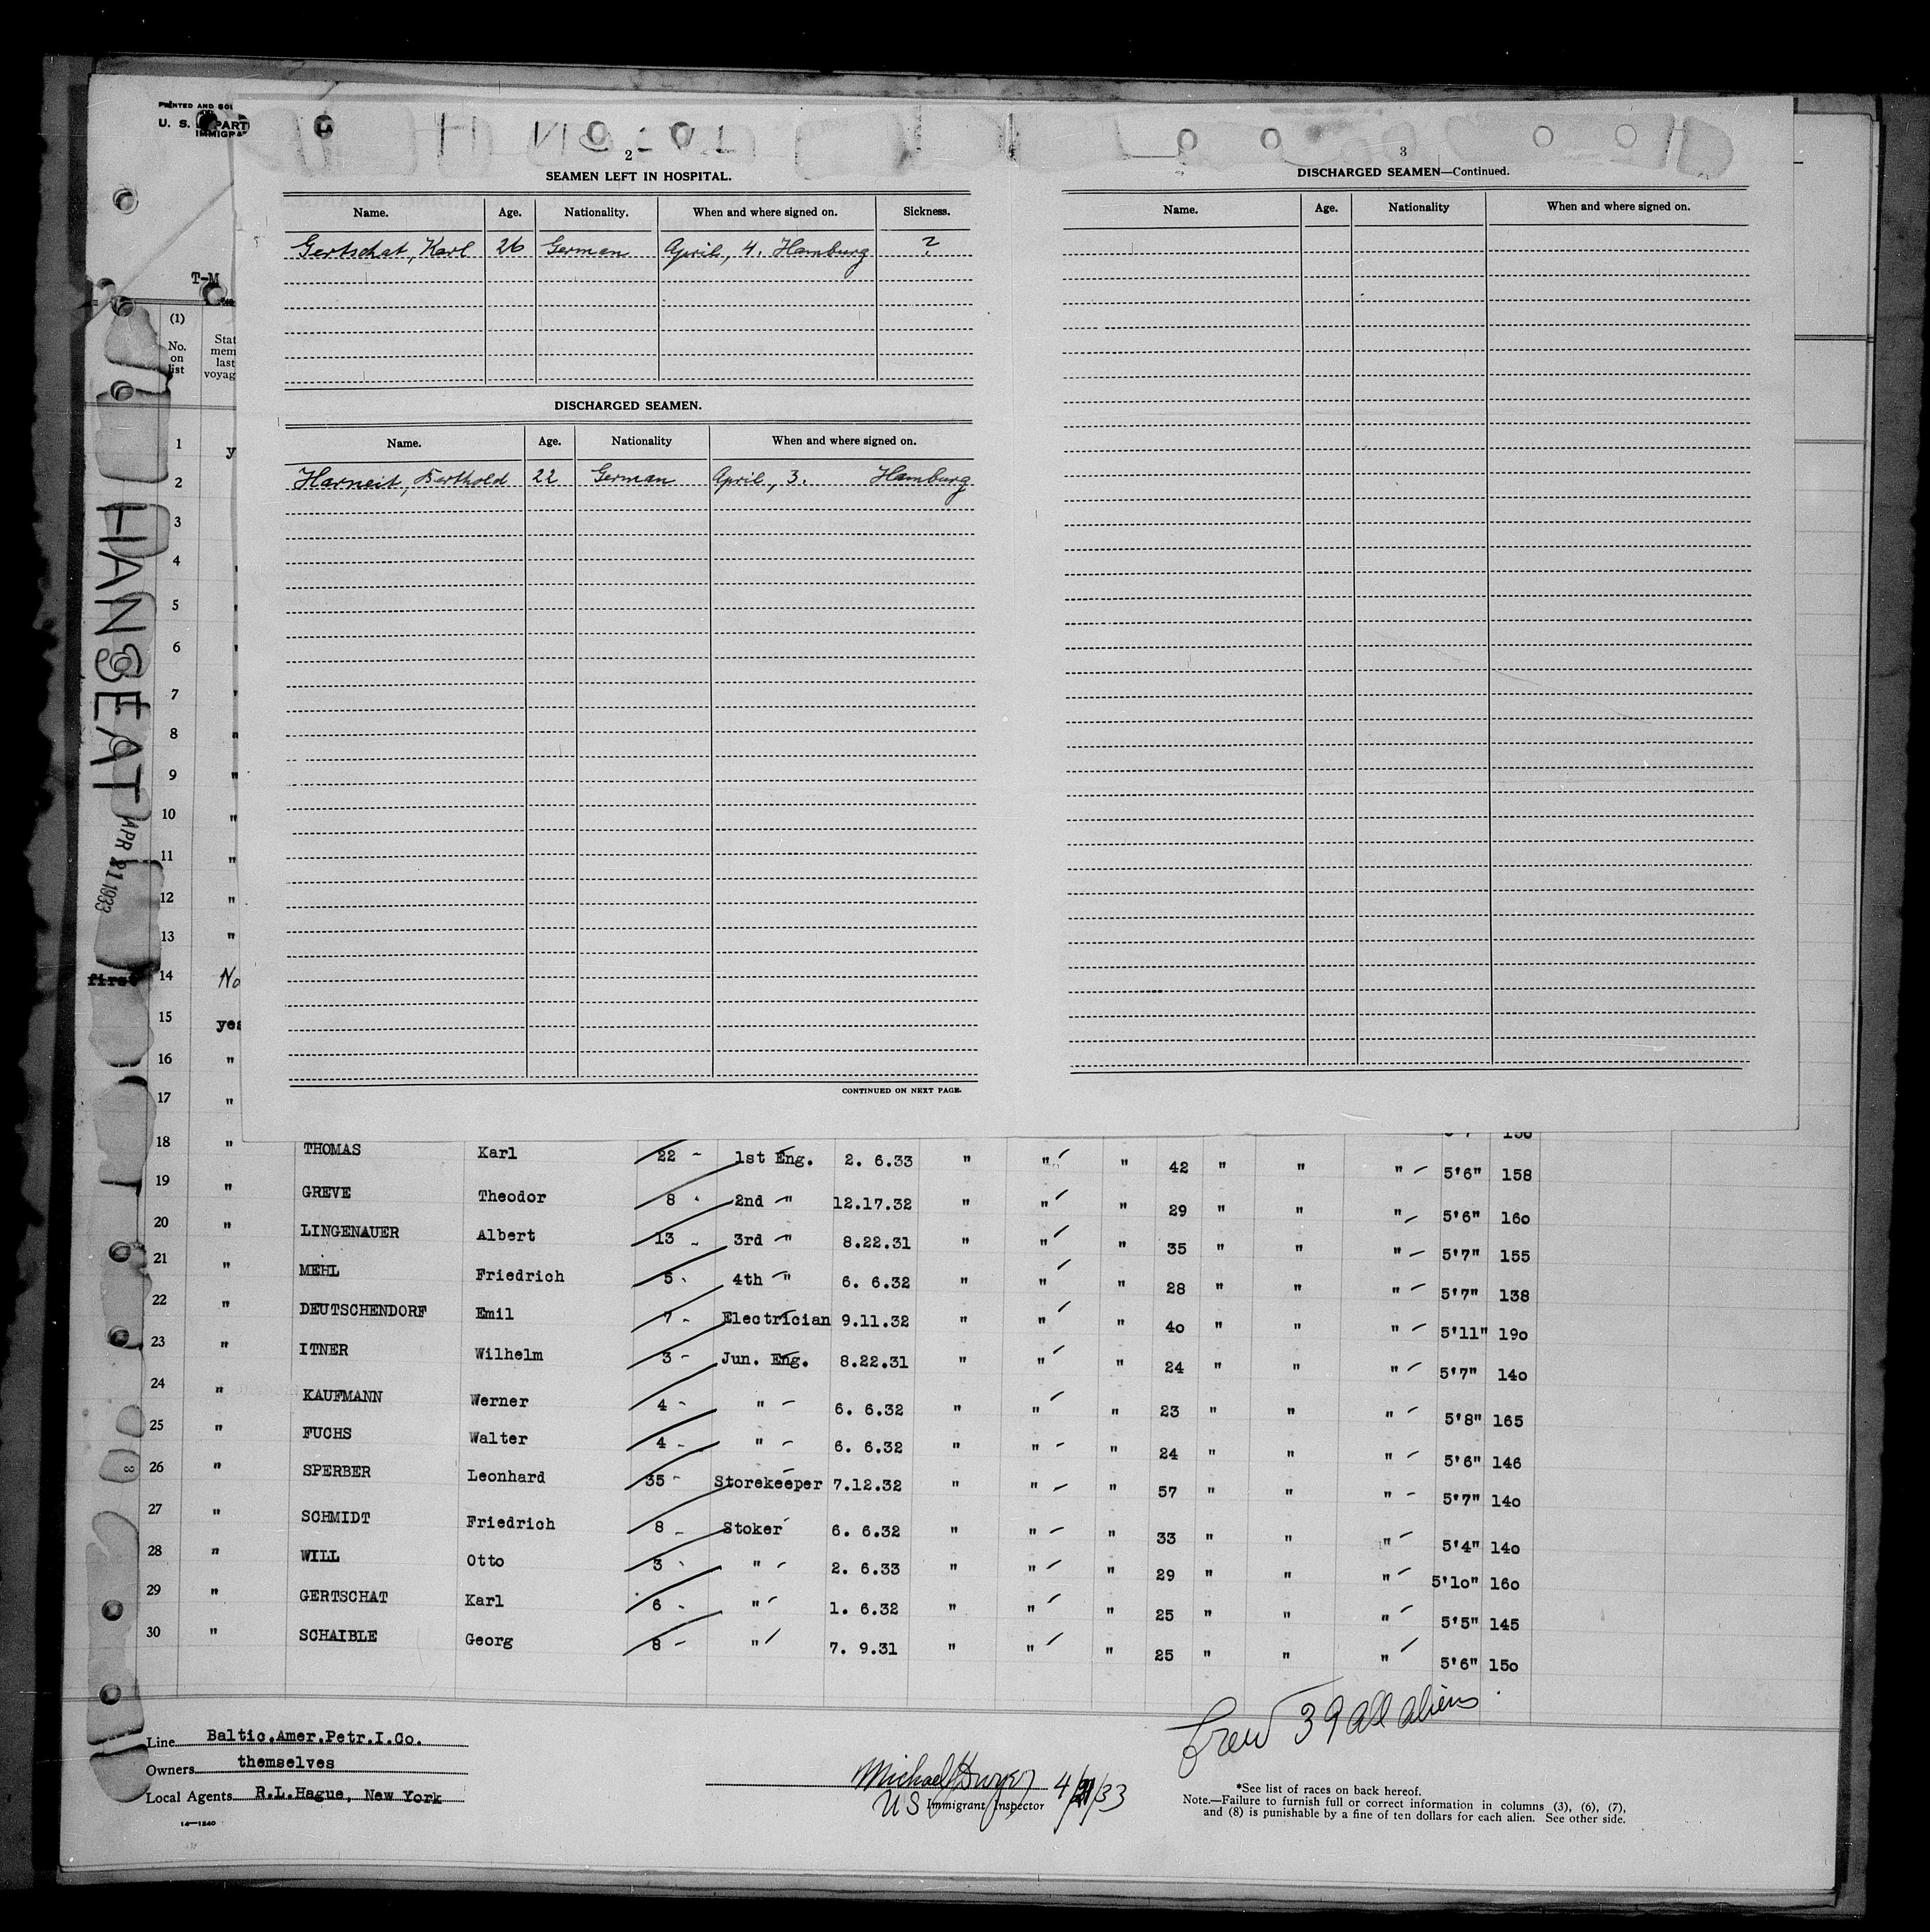 PRINTED AND SOL
U. S. PART
IMMIGRA
T-M
(1)
No. on list
Stat mem last voyag
HANSEAT
APR 21 1933
2
SEAMEN LEFT IN HOSPITAL.
Name. Age. Nationality. When and where signed on. Sickness.
Gertschat, Karl 26 German April, 4. Hamburg ?
DISCHARGED SEAMEN.
Name. Age. Nationality When and where signed on.
Harneit, Berthold 22 German April, 3. Hamburg
CONTINUED ON NEXT PAGE.
3
DISCHARGED SEAMEN—Continued.
Name. Age. Nationality When and where signed on.
1 y
2
3
4
5
6
7
8 "
9 "
10 "
11 "
12 "
13 "
first 14 No
15 yes
16 "
17 "
18 " THOMAS Karl 22 - 1st Eng. 2. 6.33 " " " 42 " " " 5'6" 158
19 " GREVE Theodor 8 2nd " 12.17.32 " " " 29 " " " 5'6" 160
20 " LINGENAUER Albert 13 - 3rd " 8.22.31 " " " 35 " " " 5'7" 155
21 " MEHL Friedrich 5 4th " 6. 6.32 " " " 28 " " " 5'7" 138
22 " DEUTSCHENDORF Emil 7 - Electrician 9.11.32 " " " 40 " " " 5'11" 190
23 " ITNER Wilhelm 3 - Jun. Eng. 8.22.31 " " " 24 " " " 5'7" 140
24 " KAUFMANN Werner 4 - " 6. 6.32 " " " 23 " " " 5'8" 165
25 " FUCHS Walter 4 - " 6. 6.32 " " " 24 " " " 5'6" 146
26 " SPERBER Leonhard 35 - Storekeeper 7.12.32 " " " 57 " " " 5'7" 140
27 " SCHMIDT Friedrich 8 - Stoker 6. 6.32 " " " 33 " " " 5'4" 140
28 " WILL Otto 3 " 2. 6.33 " " " 29 " " " 5'10" 160
29 " GERTSCHAT Karl 6 - " 1. 6.32 " " " 25 " " " 5'5" 145
30 " SCHAIBLE Georg 8 - " 7. 9.31 " " " 25 " " " 5'6" 150
Crew 39 all aliens
Line Baltic.Amer.Petr.I.Co.
Owners themselves
Local Agents R.L.Hague, New York
14—1240
Michael Dwyer 4/21/33
US Immigrant Inspector
*See list of races on back hereof.
Note.—Failure to furnish full or correct information in columns (3), (6), (7),
and (8) is punishable by a fine of ten dollars for each alien. See other side.